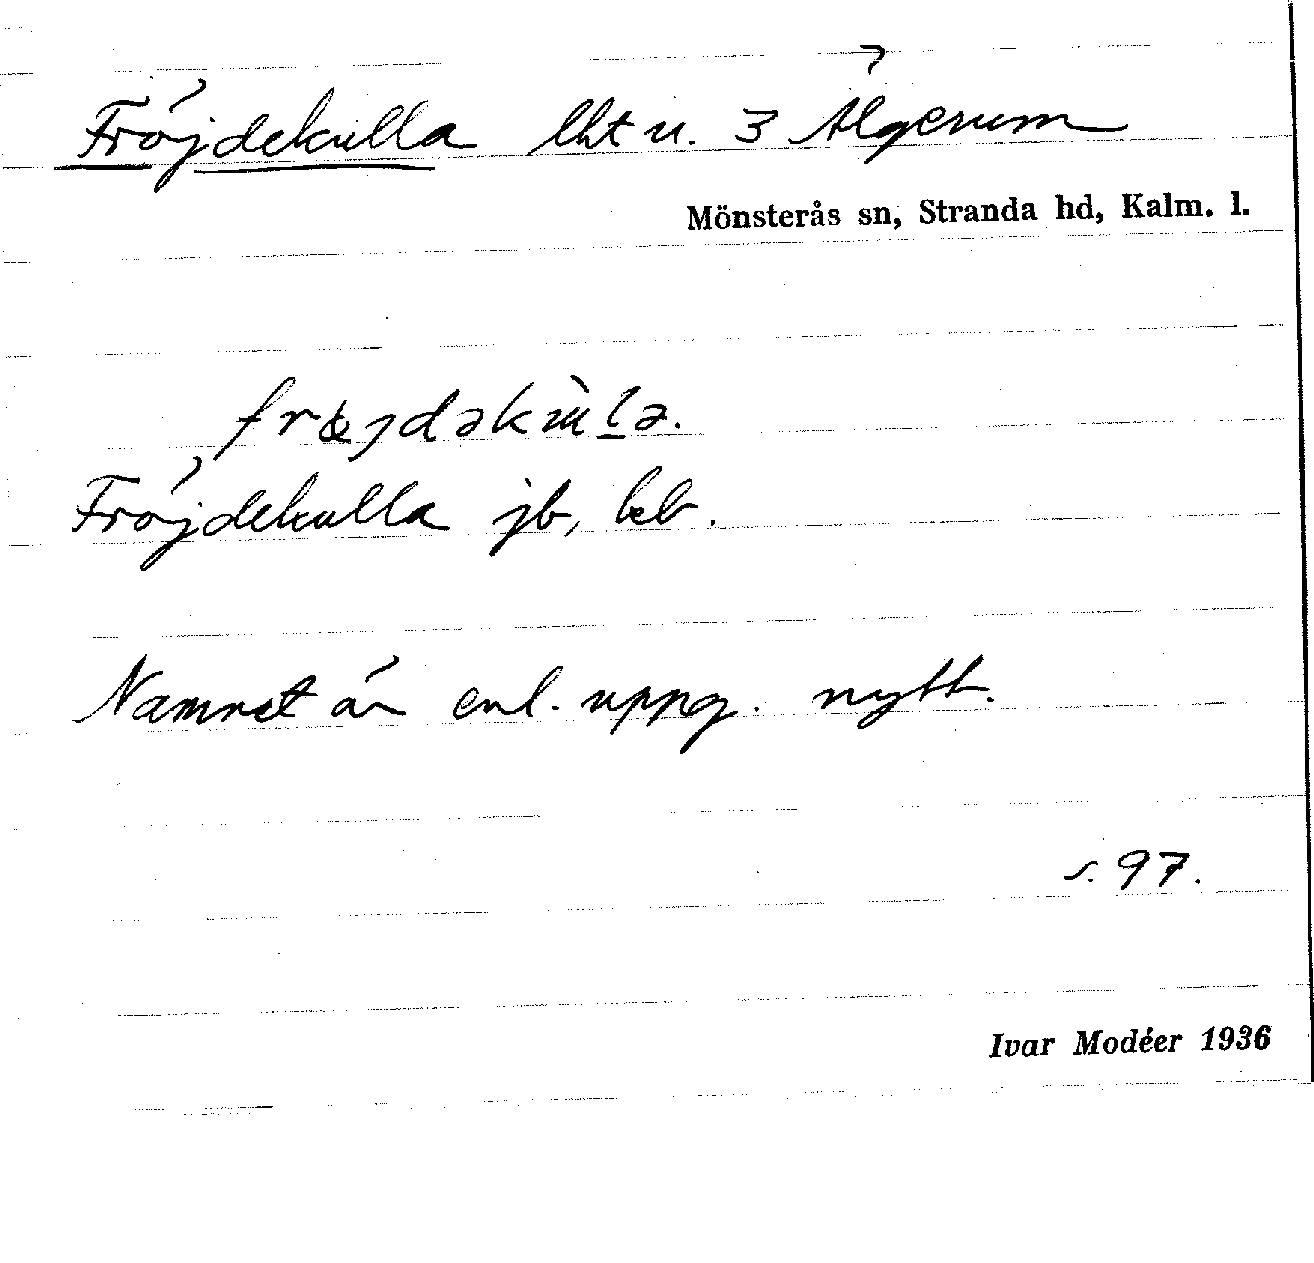 Fröjdekulla lht u. 3 Älgerum
Mönsterås sn, Stranda hd, Kalm. l.
Fröjdekulla jb, kb.
Namnet är enl. uppg. nytt.
s. 97.
Ivar Modéer 1936